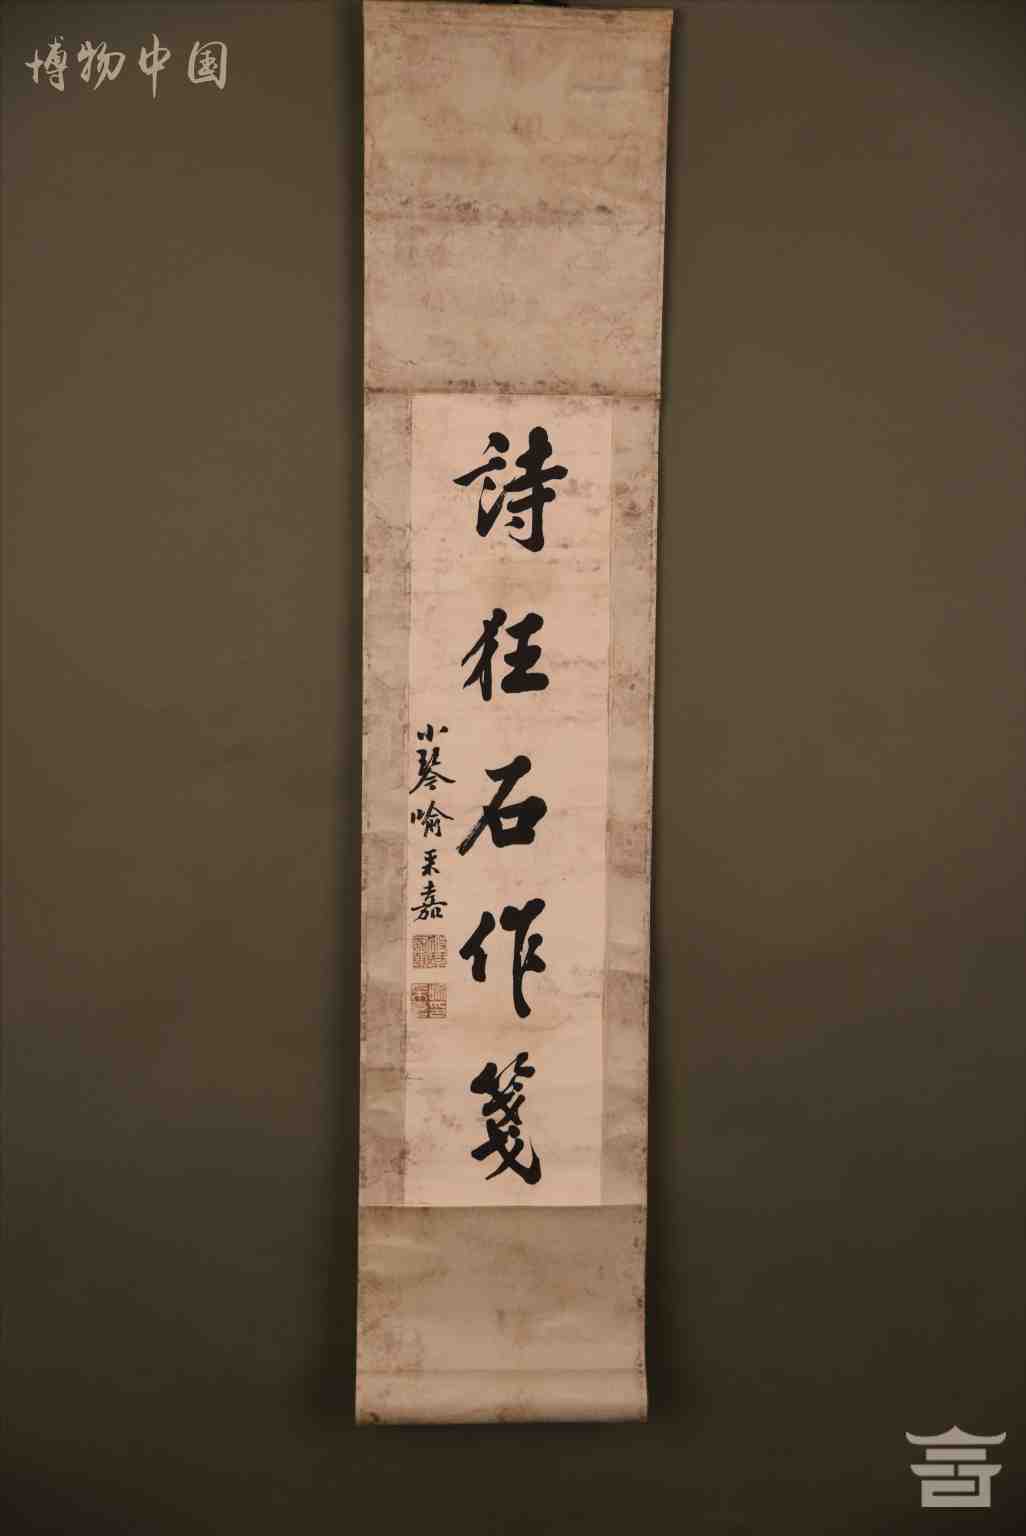 博物中国
詩狂石作箋
小琴喻秉嘉